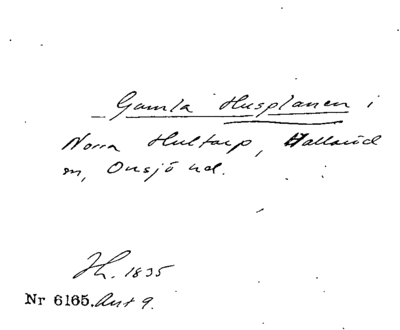 Gamla Husplanen i
Norra Hultarp, Hallaröd
sn, Onsjö hd.
Jh. 1835
Nr 6165. Ant 9.